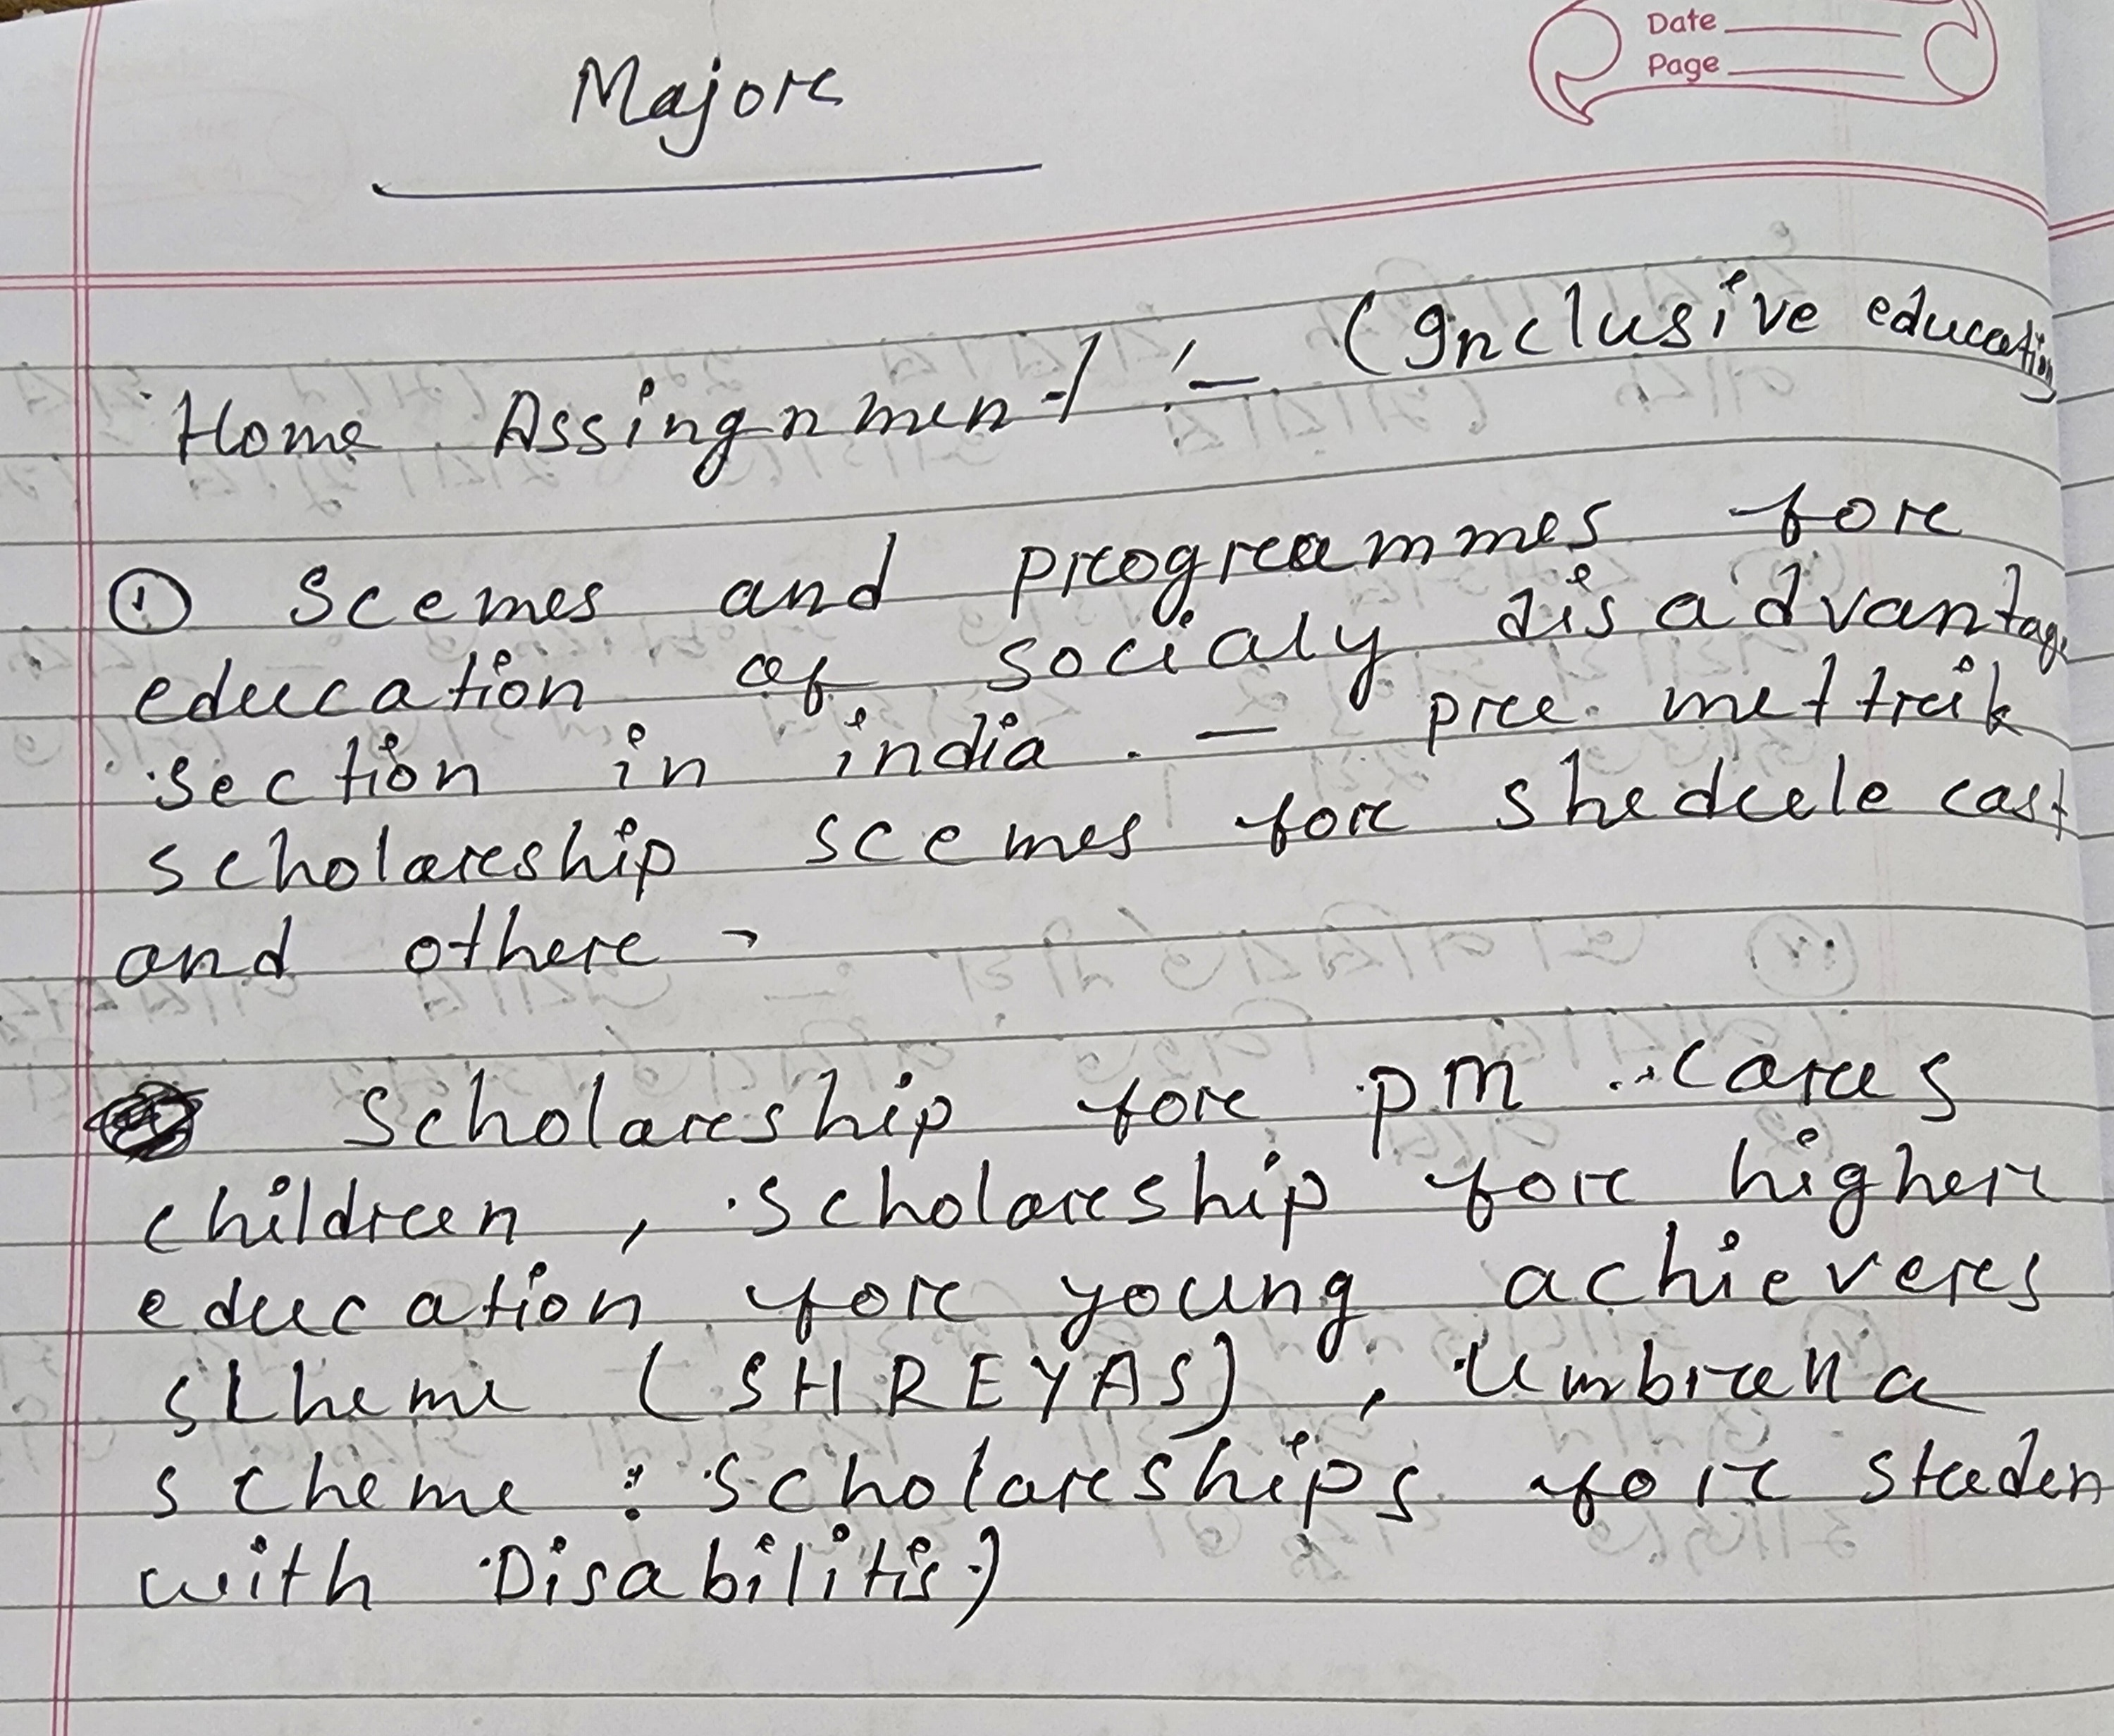 Date
Page
Major
Home Assingnment :- (Inclusive education
① Scemes and programmes for
education of socialy disadvantage
section in india. - pre. mettrik
scholarship scemes for shedule cast
and other -
Scholarship for pm cares
children, scholarship for higher
education for young achievers
scheme (SHREYAS), Umbrella
scheme : scholarships for studen
with Disabilitis)